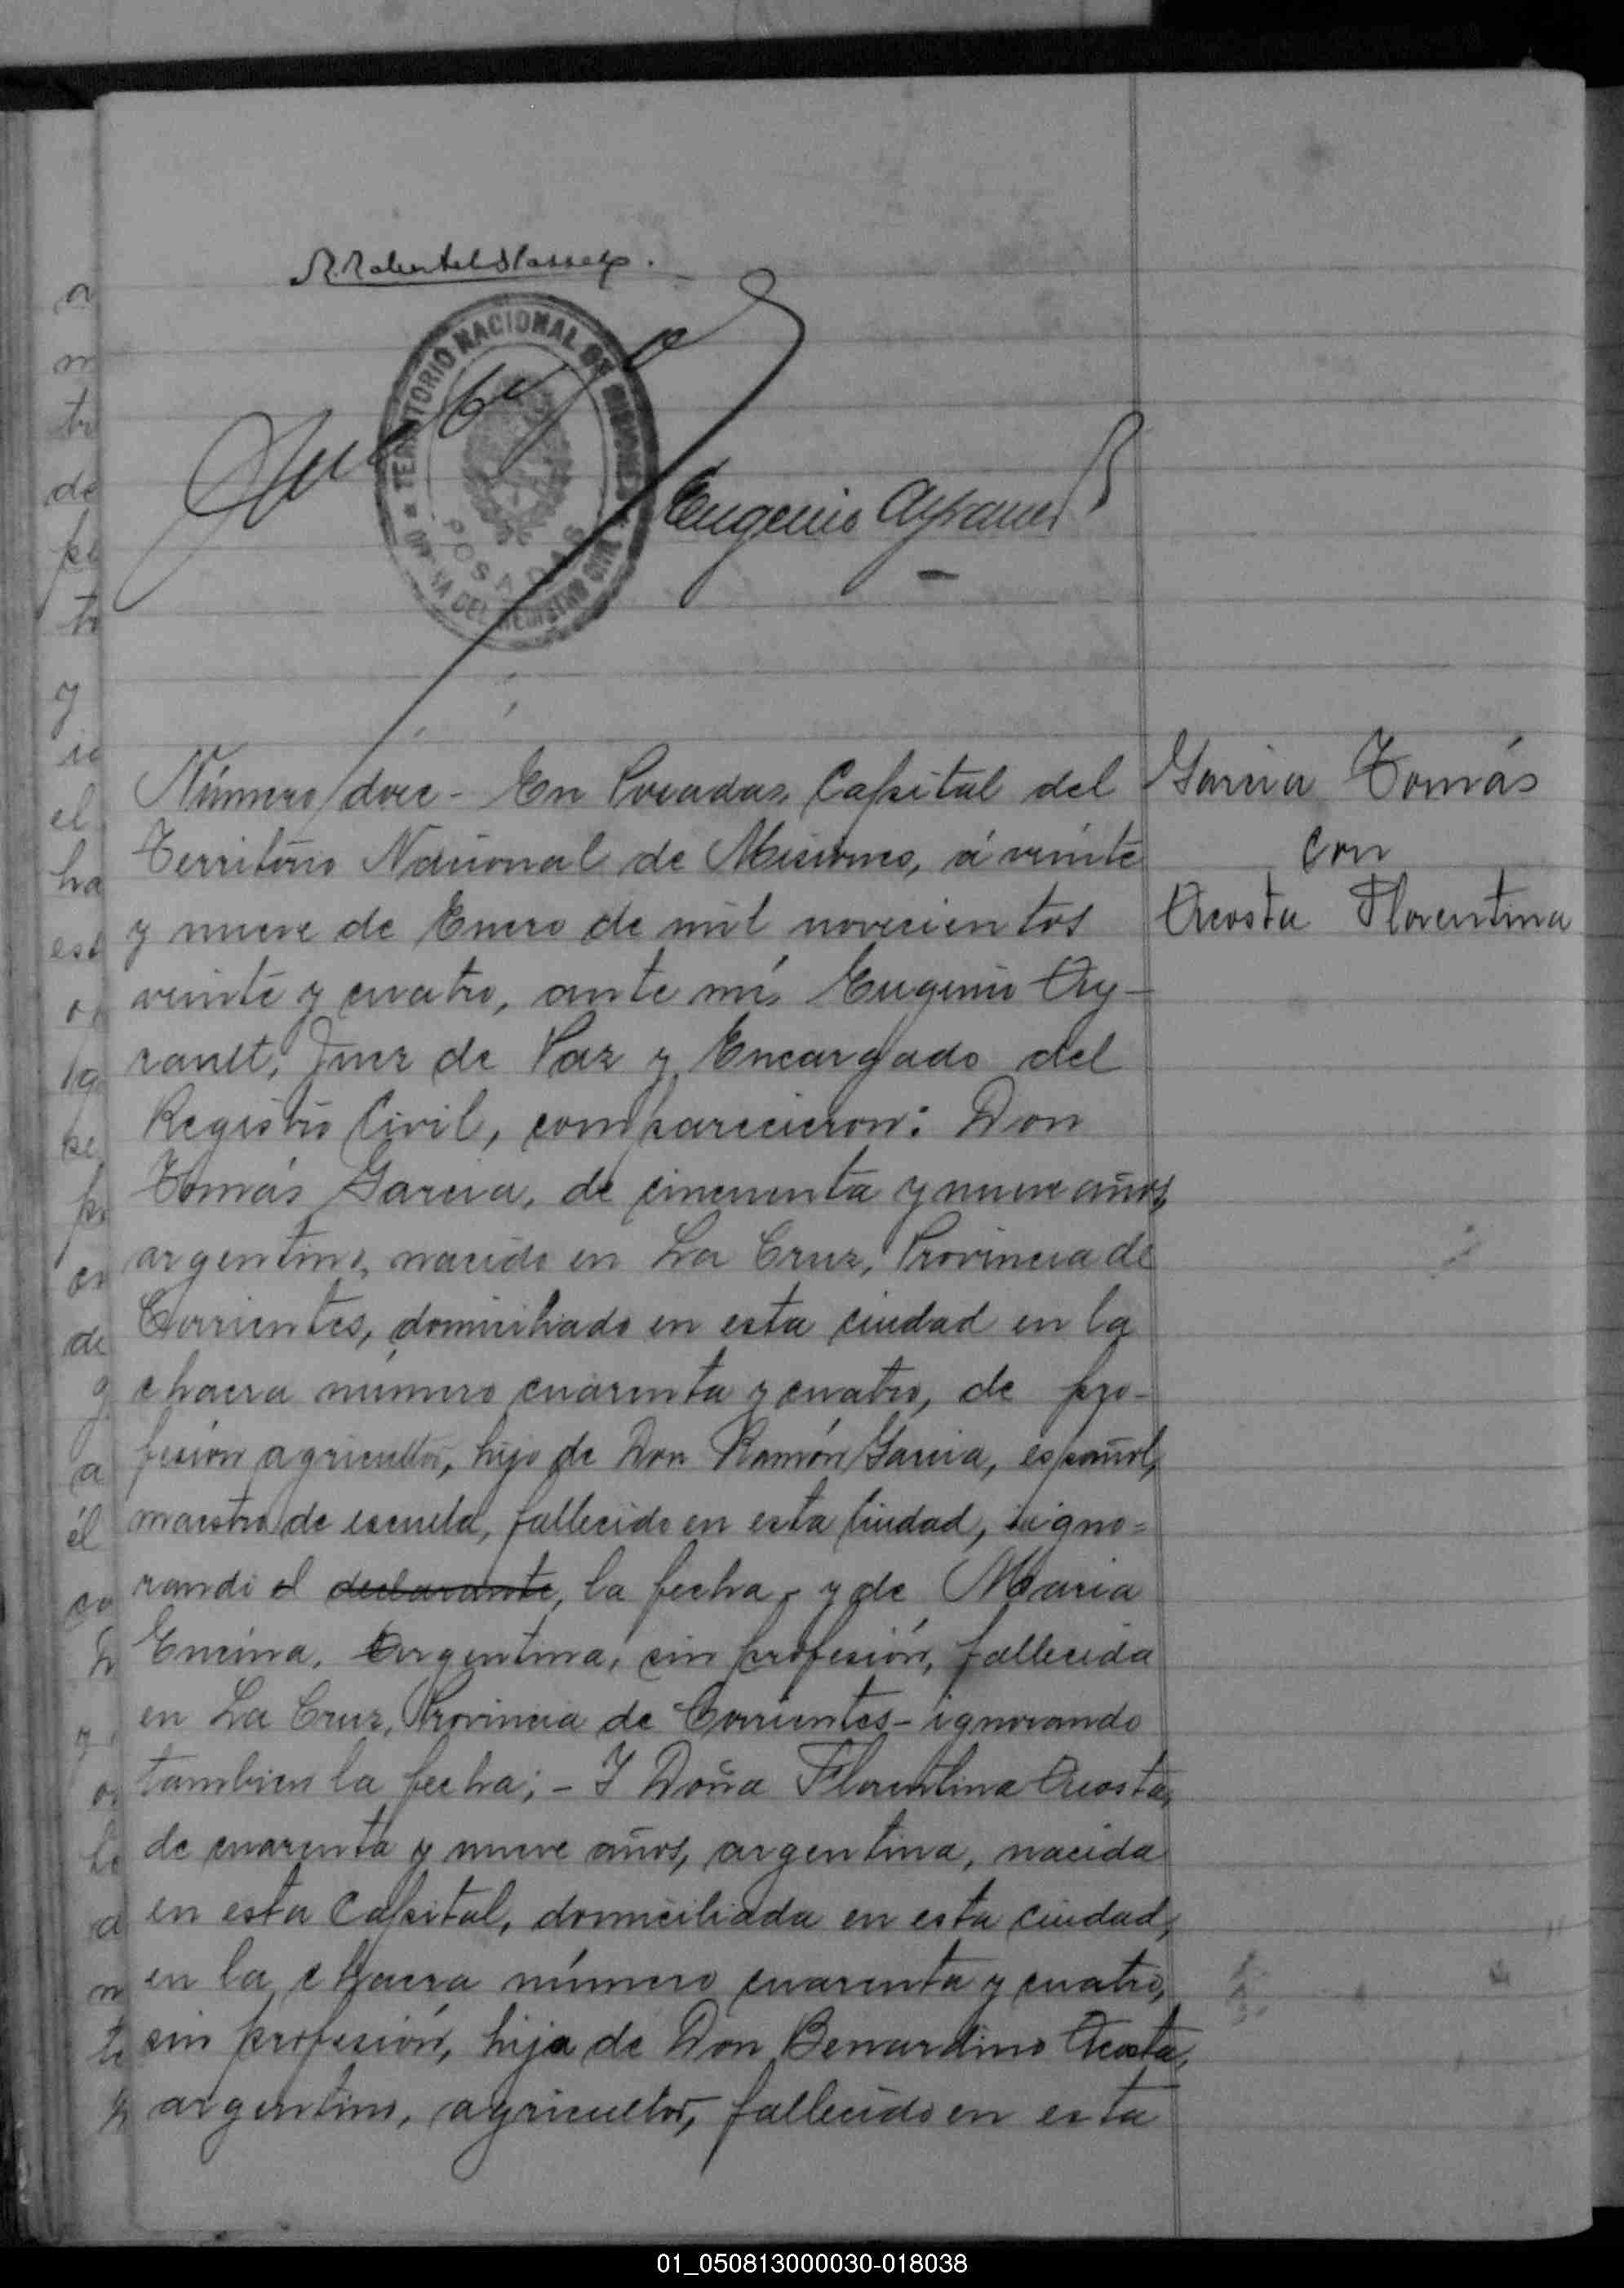 TERRITORIO NACIONAL DE MISIONES
POSADAS
OFICINA DEL REGISTRO CIVIL
Eugenio Ayrault
Número doce - En Posadas, Capital del
Territorio Nacional de Misiones, á veinte
y nueve de Enero de mil novecientos
veinte y cuatro, ante mí, Eugenio Ay-
rault, Juez de Paz y Encargado del
Registro Civil, comparecieron: Don
Tomás Garcia, de cincuenta y nueve años,
argentino, nacido en La Cruz, Provincia de
Corrientes, domiciliado en esta ciudad en la
chacra número cuarenta y cuatro, de pro-
fesión agricultor, hijo de Don Ramón Garcia, español,
maestro de escuela, fallecido en esta Ciudad, igno=
rando el declarante, la fecha, y de Maria
Encina, Argentina, sin profesión, fallecida
en La Cruz, Provincia de Corrientes - ignorando
tambien la fecha; - Y Doña Florentina Acosta,
de cuarenta y nueve años, argentina, nacida
en esta Capital, domiciliada en esta ciudad,
en la chacra número cuarenta y cuatro,
sin profesión, hija de Don Bernardino Acosta,
argentino, agricultor, fallecido en esta
Garcia Tomás
con
Acosta Florentina
01_050813000030-018038